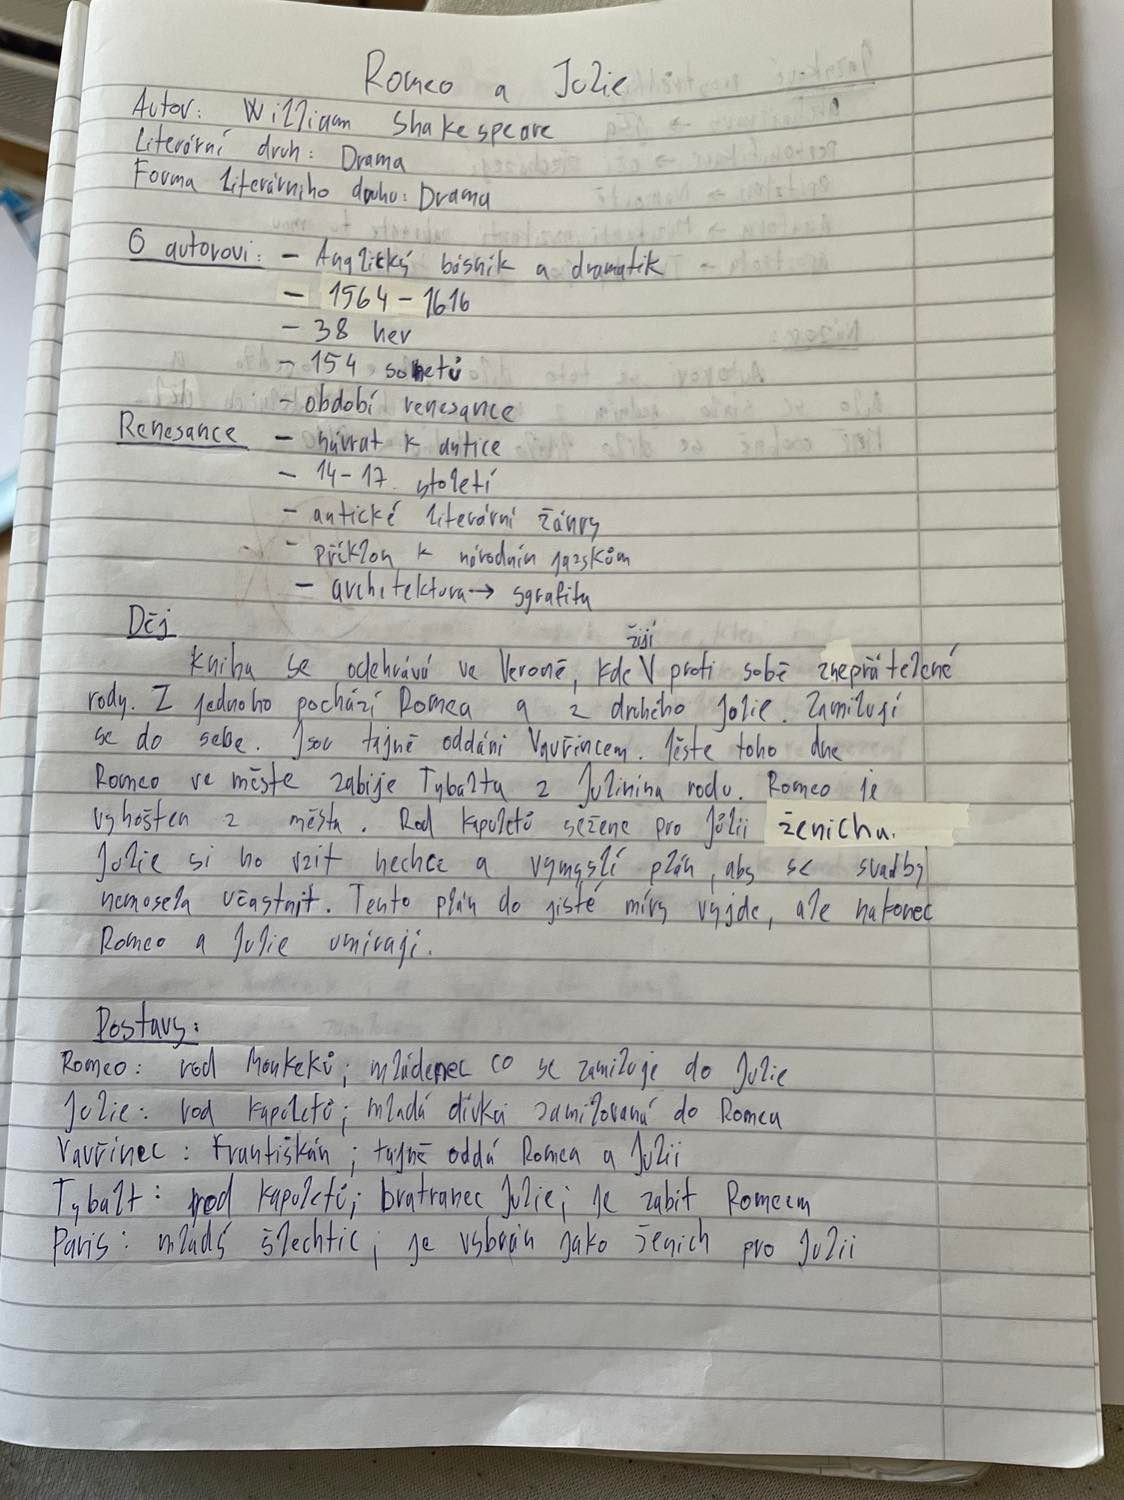 Romeo a Julie
Autor: William Shakespeare
Literární druh: Drama
Forma literárního druhu: Drama
O autorovi: - Anglický básník a dramatik
- 1564 - 1616
- 38 her
- 154 sonetů
- období renesance
Renesance - návrat k antice
- 14-17. století
- antické literární žánry
- příklon k národním jazykům
- architektura → sgrafita
Děj
žijí
Kniha se odehrává ve Veroně, kde V proti sobě znepřátelené
rody. Z jednoho pochází Romea a z druhého Julie. Zamilují
se do sebe. Jsou tajně oddáni Vavřincem. Ješte toho dne
Romeo ve měste zabije Tybalta z Juliina rodu. Romeo je
vyhoštěn z města. Rod Kapuletů sežene pro Julii ženicha.
Julie si ho vzít nechce a vymyslí plán, aby se svadby
nemusela účastnit. Tento plán do jisté míry vyjde, ale nakonec
Romeo a Julie umírají.
Postavy:
Romeo: rod Monteků; mládenec co se zamiluje do Julie
Julie: rod Kapuletů; mladá dívka zamilovaná do Romea
Vavřinec: Františkán; tajně oddá Romea a Julii
Tybalt: rod Kapuletů; bratranec Julie; je zabit Romeem
Paris: mladý šlechtic; je vybrán jako ženich pro Julii